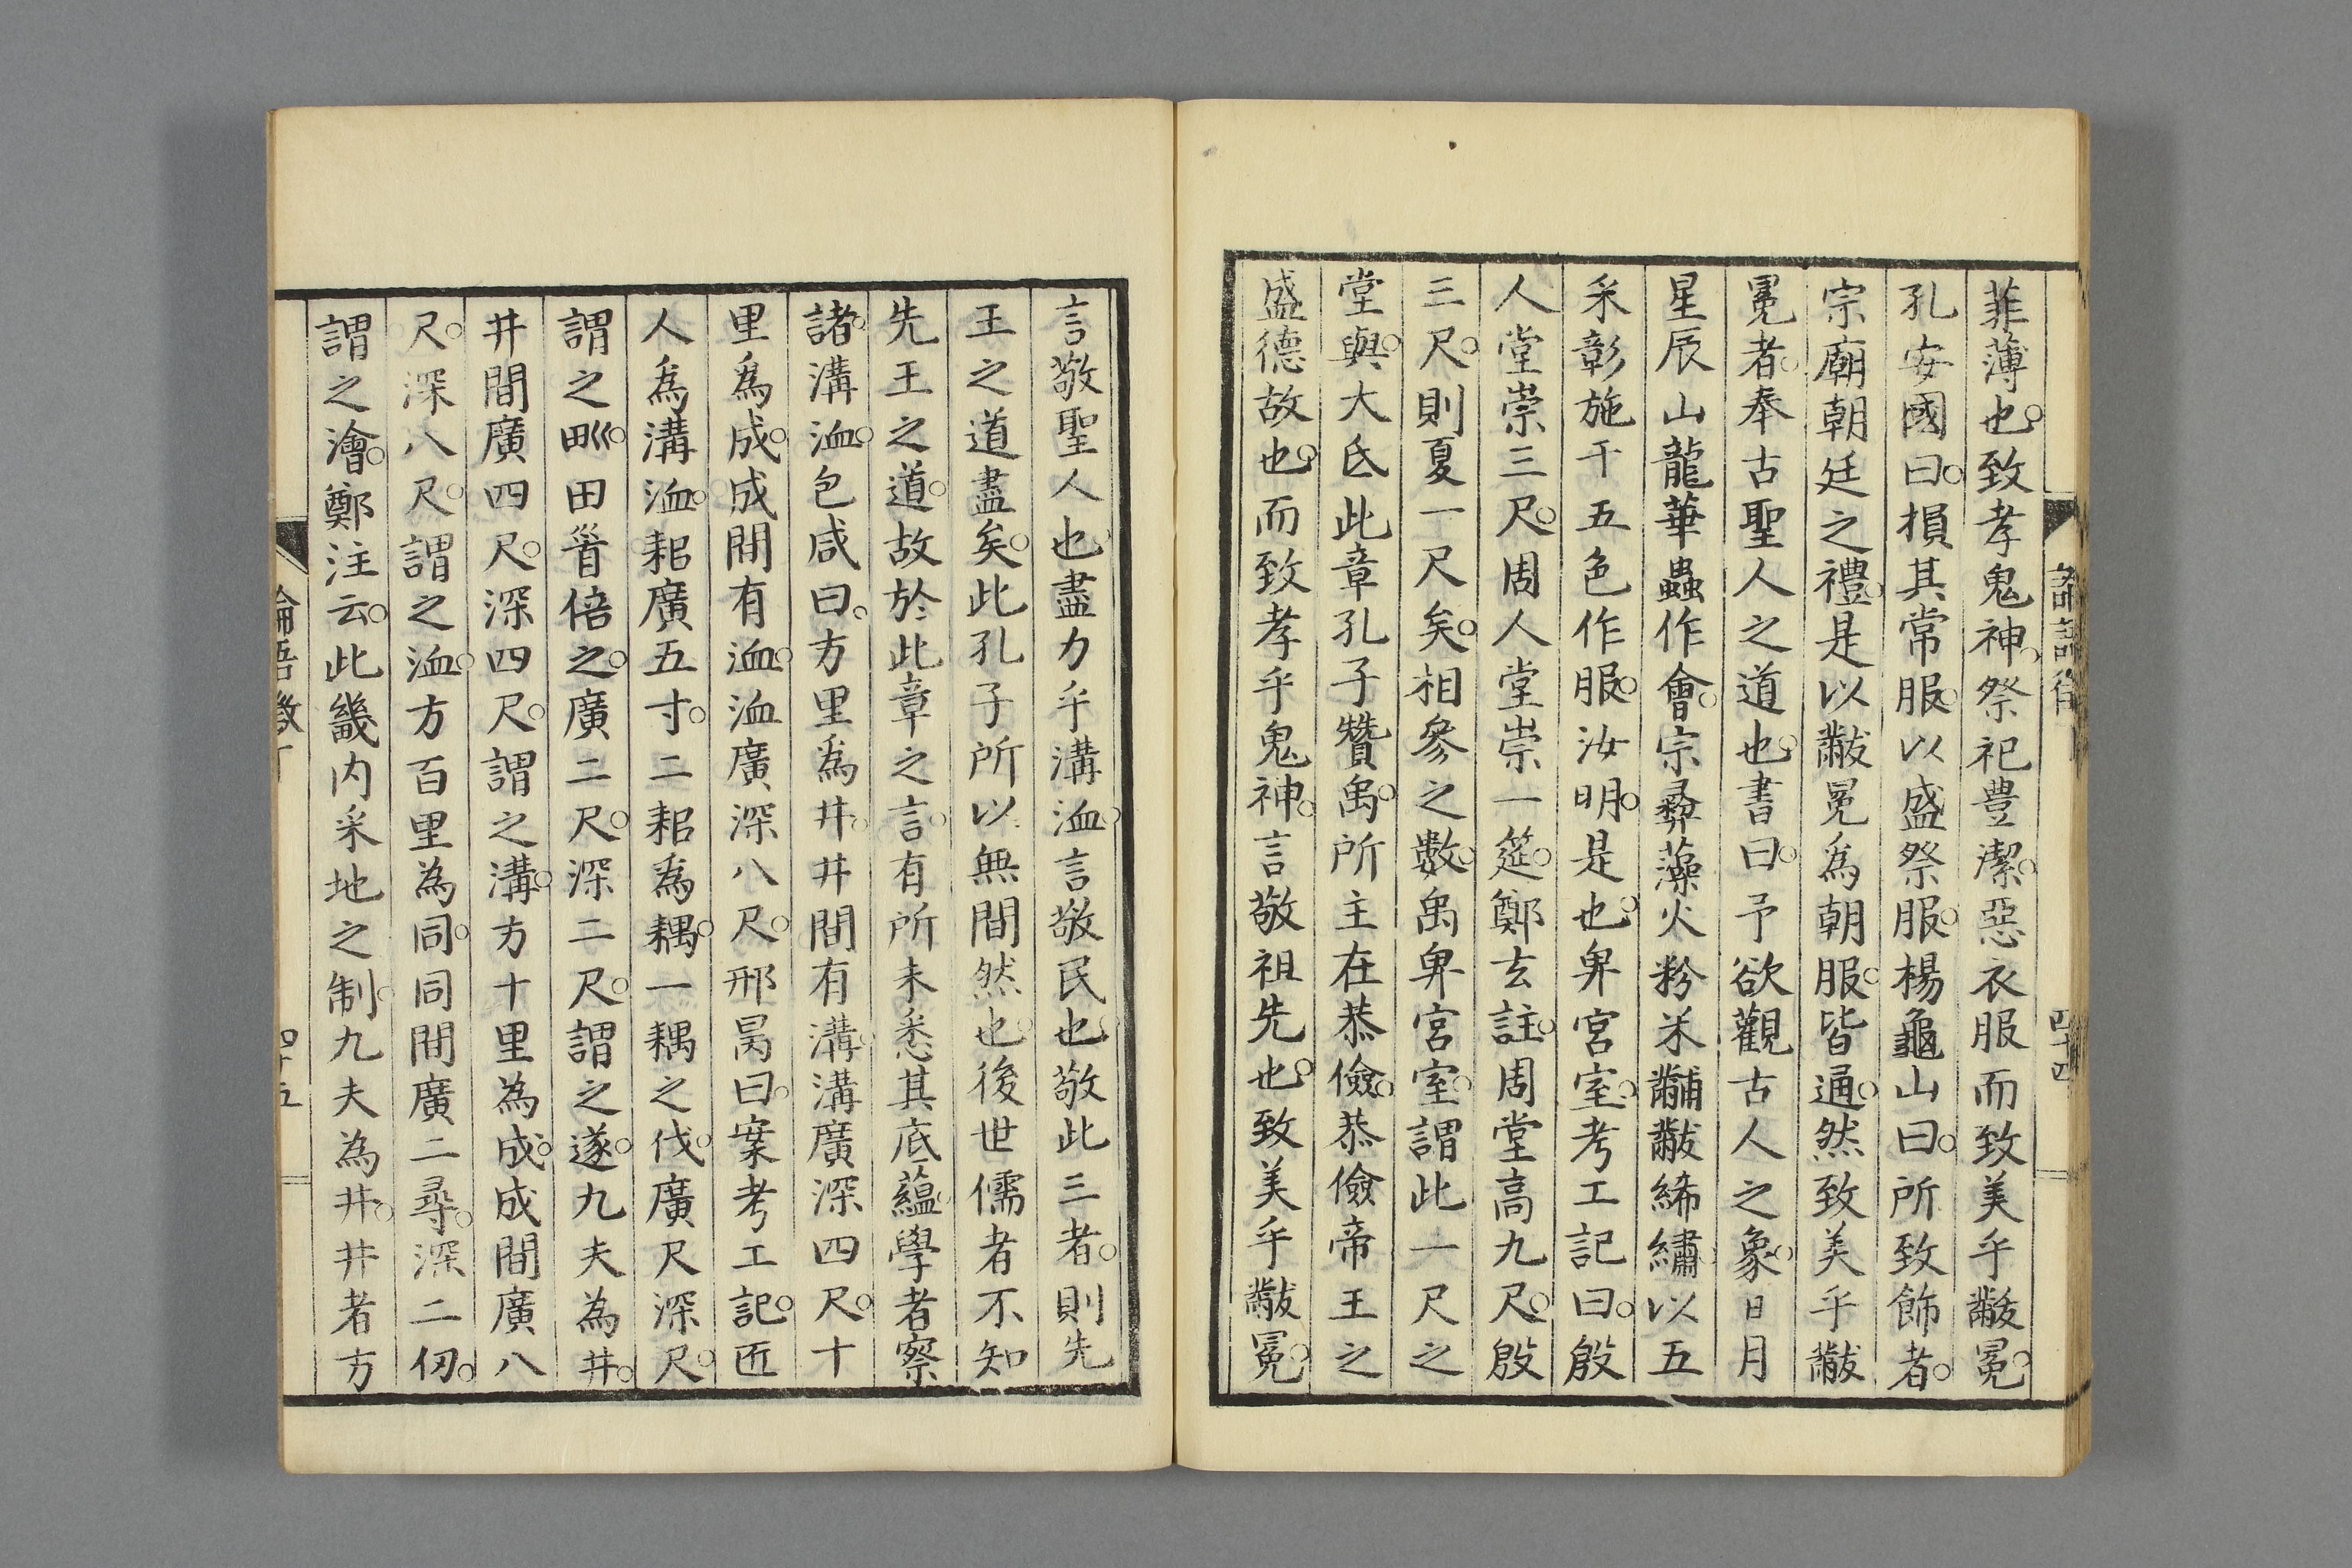 菲薄也。致孝鬼神。祭祀豊潔。惡衣服而致美乎黻冕。
孔安國曰。損其常服。以盛祭服。楊龜山曰。所致飾者。
宗廟朝廷之禮。是以黻冕爲朝服。皆通。然致美乎黻
冕者。奉古聖人之道也。書曰。予欲觀古人之象。日月
星辰山龍華蟲作會。宗彜藻火粉米黼黻絺繡。以五
采彰施于五色作服。汝明。是也。卑宮室。考工記曰。殷
人堂崇三尺。周人堂崇一筵。鄭玄註。周堂高九尺。殷
三尺。則夏一尺矣。相參之數。禹卑宮室。謂此一尺之
堂與。大氐此章孔子贊禹。所主在恭儉。恭儉帝王之
盛德故也。而致孝乎鬼神。言敬祖先也。致美乎黻冕。
言敬聖人也。盡力乎溝洫。言敬民也。敬此三者。則先
王之道盡矣。此孔子所以無間然也。後世儒者不知
先王之道。故於此章之言。有所未悉其底蘊。學者察
諸。溝洫。包咸曰。方里爲井。井間有溝。溝廣深四尺。十
里爲成。成間有洫。洫廣深八尺。邢昺曰。案考工記。匠
人爲溝洫。耜廣五寸。二耜爲耦。一耦之伐。廣尺深尺。
謂之𤰕。田首倍之。廣二尺。深二尺。謂之遂。九夫為井。
井間廣四尺。深四尺。謂之溝。方十里為成。成間廣八
尺。深八尺。謂之洫。方百里為同。同間廣二尋。深二仞。
謂之澮。鄭注云。此畿内采地之制。九夫為井。井者方
論語徵丁
四十五